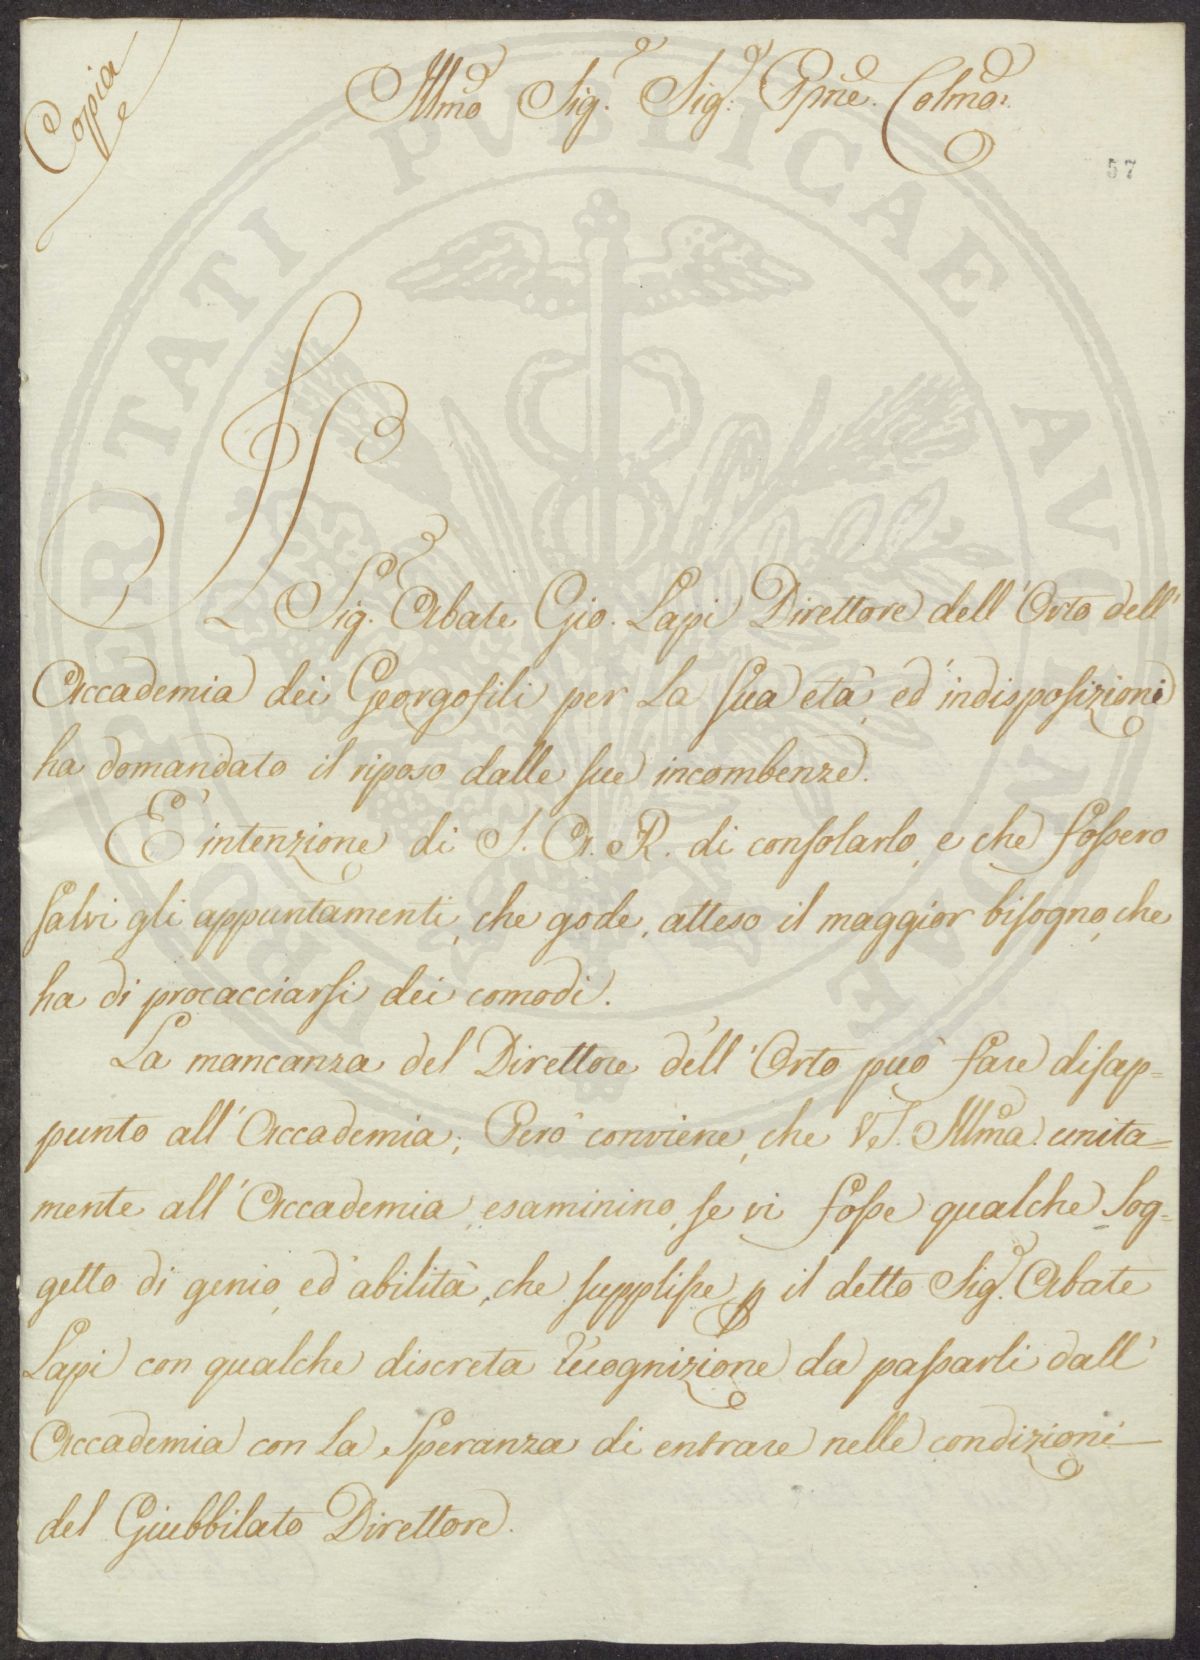 Copia
Illmo Sig.e Sig.e Pñe. Colmo:
57
Il Sig.e Abate Gio. Lapi Direttore dell' Orto dell'
Accademia dei Georgofili per la sua età, ed' indisposizioni
ha domandato il riposo dalle sue incombenze.
E' intenzione di S. A. R. di consolarlo, e che fossero
salvi gli appuntamenti, che gode, atteso il maggior bisogno, che
ha di procacciarsi dei comodi.
La mancanza del Direttore dell' Orto può fare disap=
punto all' Accademia; Però conviene, che VS. Illma. unita=
mente all' Accademia esaminino, se vi fosse qualche sog=
getto di genio, ed' abilità, che supplisse p il detto Sig.e Abate
Lapi con qualche discreta ricognizione da passarli dall'
Accademia con la speranza di entrare nelle condizioni
del Giubbilato Direttore.
PROSPERITATI PVBLICAE AVGENDAE